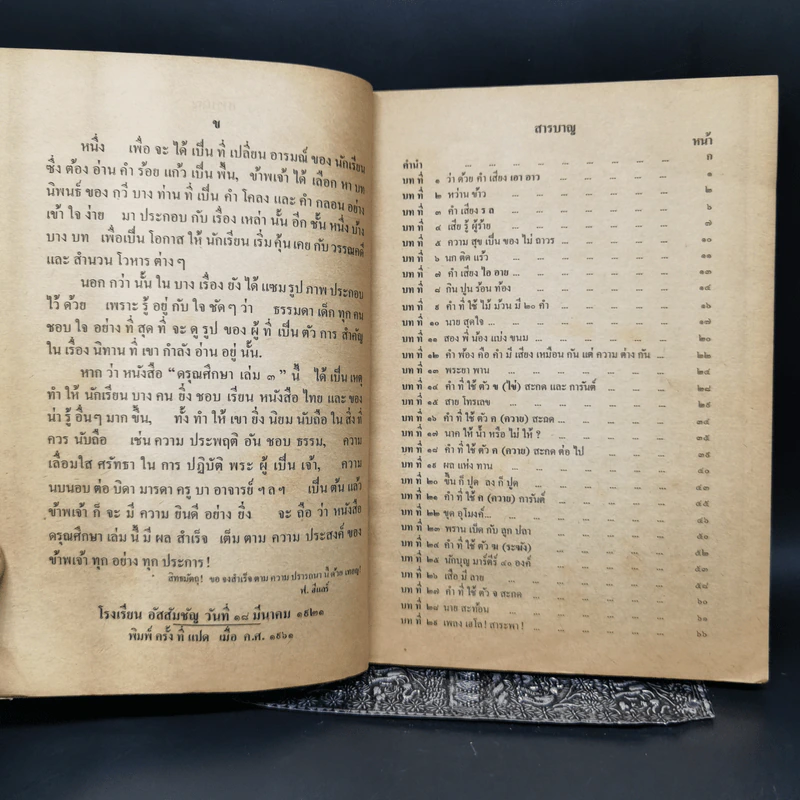 ข
หนึ่ง เพื่อ จะ ได้ เป็น ที่ เปลี่ยน อารมณ์ ของ นักเรียน
ซึ่ง ต้อง อ่าน คำ ร้อย แก้ว เป็น พื้น, ข้าพเจ้า ได้ เลือก หา บท
นิพนธ์ ของ กวี บาง ท่าน ที่ เป็น คำ โคลง และ คำ กลอน อย่าง
เข้า ใจ ง่าย มา ประกอบ กับ เรื่อง เหล่า นั้น อีก ชั้น หนึ่ง บ้าง
บาง บท เพื่อ เป็น โอกาส ให้ นักเรียน เริ่ม คุ้น เคย กับ วรรณคดี
และ สำนวน โวหาร ต่าง ๆ
นอก กว่า นั้น ใน บาง เรื่อง ยัง ได้ แซม รูป ภาพ ประกอบ
ไว้ ด้วย เพราะ รู้ อยู่ กับ ใจ ชัด ๆ ว่า ธรรมดา เด็ก ทุก คน
ชอบ ใจ อย่าง ที่ สุด ที่ จะ ดู รูป ของ ผู้ ที่ เป็น ตัว การ สำคัญ
ใน เรื่อง นิทาน ที่ เขา กำลัง อ่าน อยู่ นั้น.
หาก ว่า หนังสือ "ดรุณศึกษา เล่ม ๓" นี้ ได้ เป็น เหตุ
ทำ ให้ นักเรียน บาง คน ยิ่ง ชอบ เรียน หนังสือ ไทย และ ของ
น่า รู้ อื่น ๆ มาก ขึ้น, ทั้ง ทำ ให้ เขา ยิ่ง นิยม นับถือ ใน สิ่ง ที่
ควร นับถือ เช่น ความ ประพฤติ อัน ชอบ ธรรม, ความ
เลื่อมใส ศรัทธา ใน การ ปฏิบัติ พระ ผู้ เป็น เจ้า, ความ
นบนอบ ต่อ บิดา มารดา ครู บา อาจารย์ ฯลฯ เป็น ต้น แล้ว
ข้าพเจ้า ก็ จะ มี ความ ยินดี อย่าง ยิ่ง จะ ถือ ว่า หนังสือ
ดรุณศึกษา เล่ม นี้ มี ผล สำเร็จ เต็ม ตาม ความ ประสงค์ ของ
ข้าพเจ้า ทุก อย่าง ทุก ประการ!
สิทธมัตถุ! ขอ จง สำเร็จ ตาม ความ ปรารถนา นี้ ด้วย เทอญ!
ฟ. ฮีแลร์
โรงเรียน อัสสัมชัญ วันที่ ๑๘ มีนาคม ๑๙๒๑
พิมพ์ ครั้ง ที่ แปด เมื่อ ค.ศ. ๑๙๖๑
สารบาญ
หน้า
คำนำ ... ... ... ... ... ... ... ก
บท ที่ ๑ ว่า ด้วย คำ เสียง เอา อาว ... ... ... ... ... ๑
บท ที่ ๒ หว่าน ข้าว ... ... ... ... ... ... ๒
บท ที่ ๓ คำ เสียง ร ล ... ... ... ... ... ... ๖
บท ที่ ๔ เสีย รู้ ผู้ร้าย ... ... ... ... ... ... ๗
บท ที่ ๕ ความ สุข เป็น ของ ไม่ ถาวร ... ... ... ... ... ๑๐
บท ที่ ๖ นก ติด แร้ว ... ... ... ... ... ... ๑๑
บท ที่ ๗ คำ เสียง ไอ อาย ... ... ... ... ... ... ๑๓
บท ที่ ๘ กิน ปูน ร้อน ท้อง ... ... ... ... ... ... ๑๔
บท ที่ ๙ คำ ที่ ใช้ ไม้ ม้วน มี ๒๐ คำ ... ... ... ... ๑๖
บท ที่ ๑๐ นาย สุดใจ ... ... ... ... ... ... ๑๗
บท ที่ ๑๑ สอง พี่ น้อง แบ่ง ขนม ... ... ... ... ... ๒๐
บท ที่ ๑๒ คำ พ้อง คือ คำ มี เสียง เหมือน กัน แต่ ความ ต่าง กัน ... ... ๒๑
บท ที่ ๑๓ พระยา พาน ... ... ... ... ... ... ๒๒
บท ที่ ๑๔ คำ ที่ ใช้ ตัว ข (ไข่) สะกด และ การันต์ ... ... ... ๒๘
บท ที่ ๑๕ สาย โทรเลข ... ... ... ... ... ... ๒๙
บท ที่ ๑๖ คำ ที่ ใช้ ตัว ค (ควาย) สะกด ... ... ... ... ๓๔
บท ที่ ๑๗ นาค ให้ น้ำ หรือ ไม่ ให้ ? ... ... ... ... ... ๓๕
บท ที่ ๑๘ คำ ที่ ใช้ ตัว ค (ควาย) สะกด ต่อ ไป ... ... ... ... ๓๙
บท ที่ ๑๙ ผล แห่ง ทาน ... ... ... ... ... ... ๔๐
บท ที่ ๒๐ ขึ้น ก็ ปุด ลง ก็ ปุด ... ... ... ... ...
บท ที่ ๒๑ คำ ที่ ใช้ ค (ควาย) การันต์ ... ... ... ... ๔๕
บท ที่ ๒๒ ขุด อุโมงค์ ... ... ... ... ... ... ๔๖
บท ที่ ๒๓ พราน เบ็ด กับ ลูก ปลา ... ... ... ... ...
บท ที่ ๒๔ คำ ที่ ใช้ ตัว ฆ (ระฆัง) ... ... ... ... ... ๕๒
บท ที่ ๒๕ นักบุญ มาร์ตีร์ ๔๐ องค์ ... ... ... ... ...
บท ที่ ๒๖ เสือ มี ลาย ... ... ... ... ... ... ๕๘
บท ที่ ๒๗ คำ ที่ ใช้ ตัว จ สะกด ... ... ... ... ...
บท ที่ ๒๘ นาย สะท้อน ... ... ... ... ... ... ๖๑
บท ที่ ๒๙ เพลง เฮโล! สาระพา! ... ... ... ... ... ๖๖